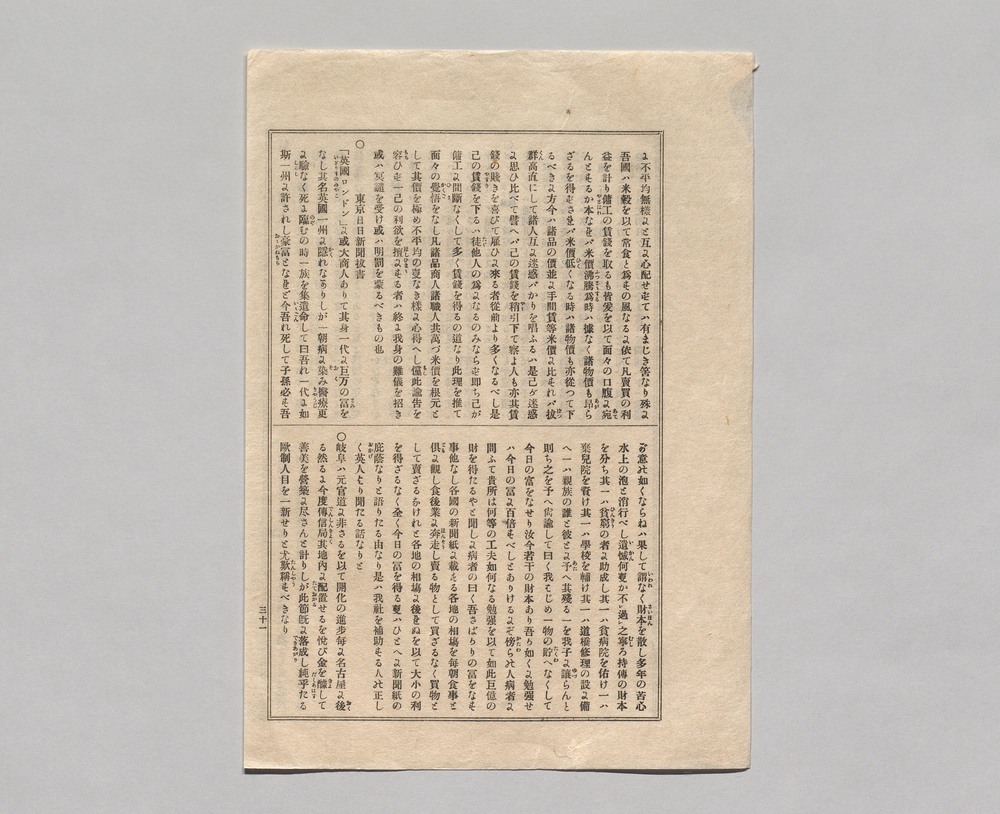 よ不平均無樣よと互よ心配せをてハ有まじき筈なり殊よ
吾國ハ米穀を以て常食と爲もの風なるよ依て凡賣買の利
益を計り傭工の賃錢を取るも皆爰を以て面々の口腹よ宛
んとそるか本なをバ米價沸騰爲時ハ據なく諸物價も昂ら
ざるを得もさをバ米價低くなる時ハ諸物價も亦從つて下
るべきよ方今ハ諸品の價並よ手間賃等米價よ比それバ拔
群高直にして諸人互よ迷惑バかりを唱ふるハ是己が迷惑
よ思ひ比べて譬へバ己の賃錢を稍引下て察よ人も亦其賃
錢の賤きを喜びて雇ひよ來る者從前より多くなるべし是
己の賃錢を下るハ徒他人の爲よなるのみならも即ち己が
傭工よ間斷なくして多く賃錢を得るの道なり此理を推て
面々の覺悟をなし凡諸品商人諸職人共萬づ米價を根元と
して其價を極め不平均の亊なき樣よ心得へし僅此諭告を
容ひも一己の利欲を擅よそる者ハ終よ我身の難儀を招き
或ハ冥譴を受け或ハ明罰を蒙るべきもの也
○ 東京日日新聞拔書
「英國ロンドン」よ或大商人ありて其身一代よ巨万の富を
なし其名英國一州よ隱れなありしが一朝病よ染み醫療更
よ驗なく死よ臨むの時一族を集遺命して曰吾れ一代よ如
斯一州よ許されし豪富となをど今吾れ死して子孫必も吾
が意の如くならねハ果して謂なく財本を散し多年の苦心
水上の泡と消行べし遺憾何亊か不過之寧ろ持傳の財本
を分ち其一ハ貧窮の者よ助成し其一ハ貧病院を佑け一ハ
棄兒院を資け其一ハ學校を補け其一ハ道橋修理の設よ備
へ一ハ親族の誰と彼とよ予へ其殘る一を我子よ讓らんと
則ち之を予へ尚諭して曰く我はじめ一物の貯へなくして
今日の富をなせり汝今若干の財本あり吾り如くよ勉强せ
ハ今日の富よ百倍そべしとありけるよぞ傍らの人病者よ
問ふて貴所は何等の工夫如何なる勉强を以て如此巨億の
財を得たるやと聞しよ病者の曰く吾さばりりの富をなそ
事他なし各國の新聞紙よ載る各地の相塲を每朝食事と
倶よ觀し食後業よ奔走し賣る物として買ざるなく買物と
して賣ざるなけれと各地の相塲よ後をぬを以て大小の利
を得ざるなく全く今日の富を得る亊ハひとへよ新聞紙の
庇蔭なりと語りたる由なり是ハ我社を補助そる人の正し
く英人より聞たる話なりと
○岐阜ハ元官道よ非さるを以て開化の進歩每よ名古屋よ後
る然るよ今度傳信局其地内よ配置せるを悅び金を醵して
善美を營築よ尽さんと計りしが此節旣よ落成し純乎たる
歐制人目を一新せりと尤歎稱そべきなり
三十一